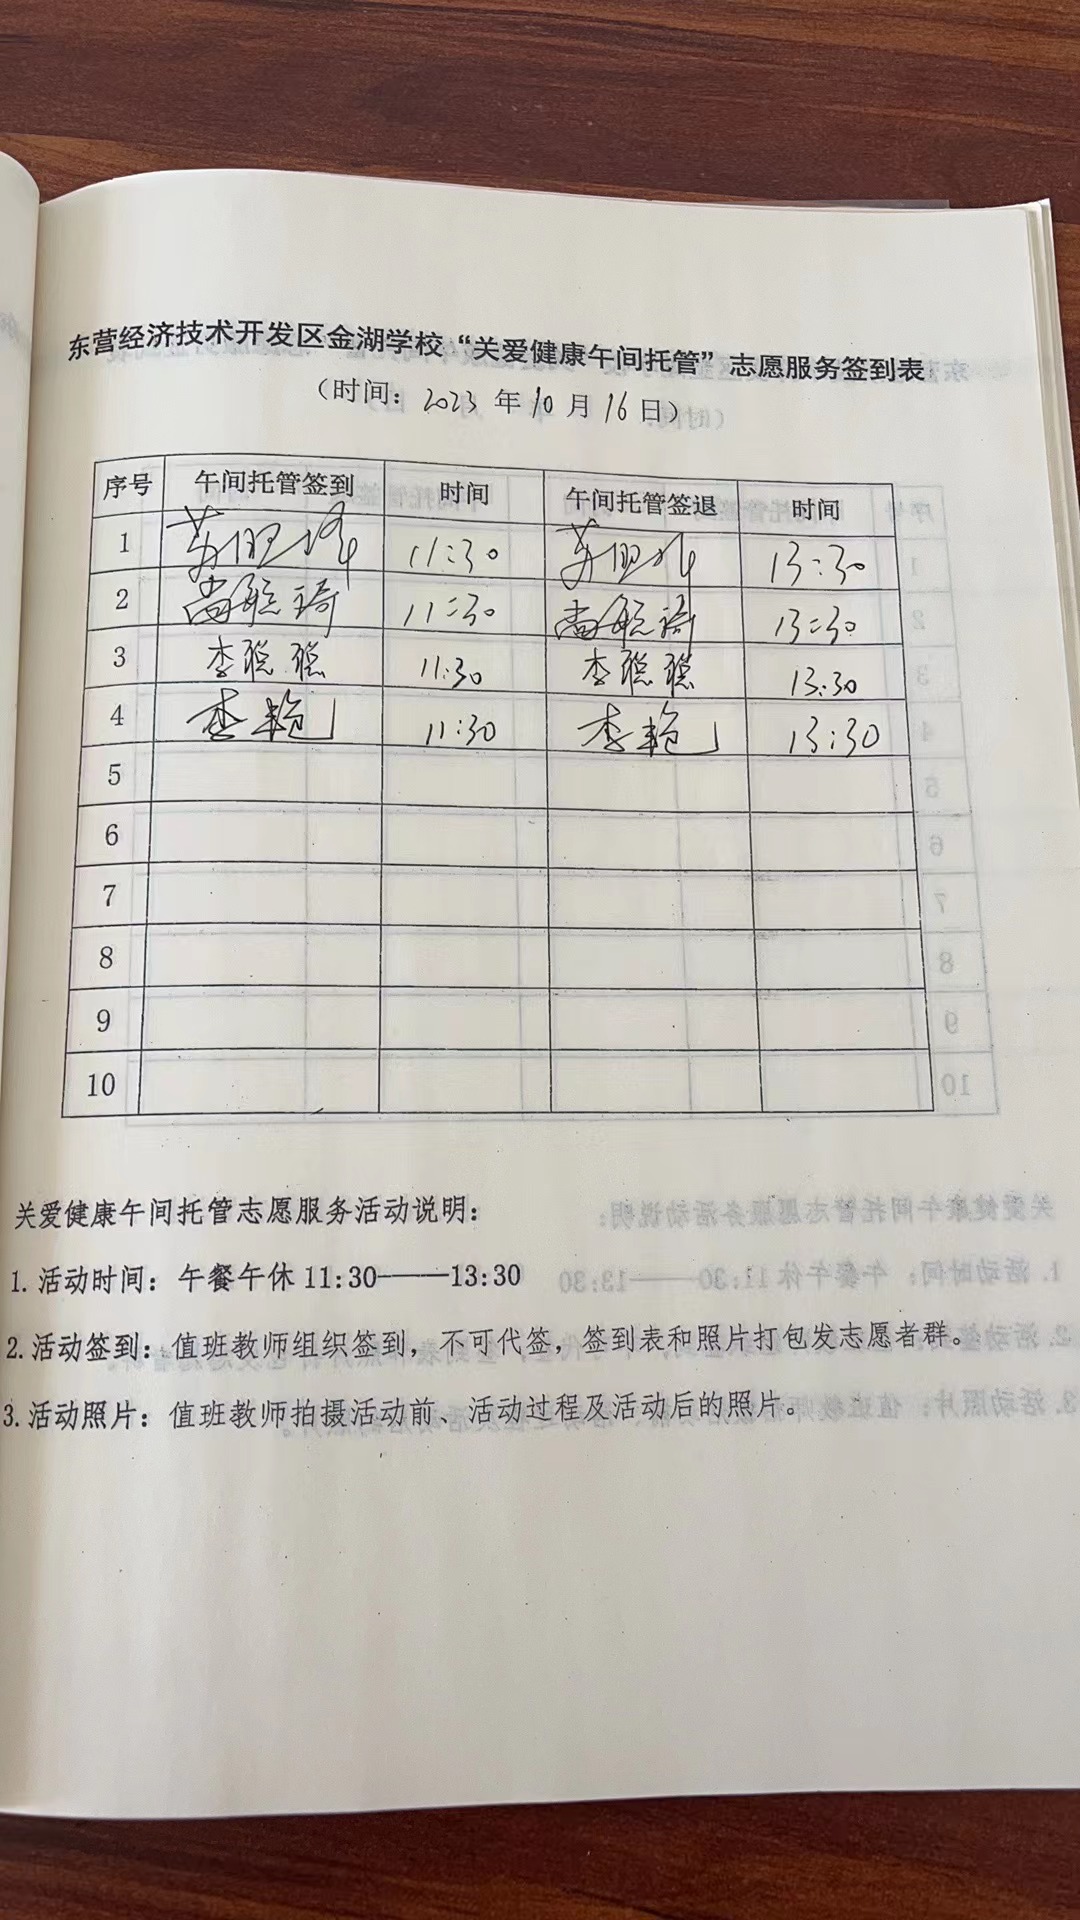 东营经济技术开发区金湖学校“关爱健康午间托管”志愿服务签到表
（时间：2023 年 10 月 16 日）
序号 午间托管签到 时间 午间托管签退 时间
1 11:30 13:30
2 11:30 13:30
3 李聪聪 11:30 李聪聪 13:30
4 李艳 11:30 李艳 13:30
5
6
7
8
9
10
关爱健康午间托管志愿服务活动说明：
1.活动时间：午餐午休11:30——13:30
2.活动签到：值班教师组织签到，不可代签，签到表和照片打包发志愿者群。
3.活动照片：值班教师拍摄活动前、活动过程及活动后的照片。